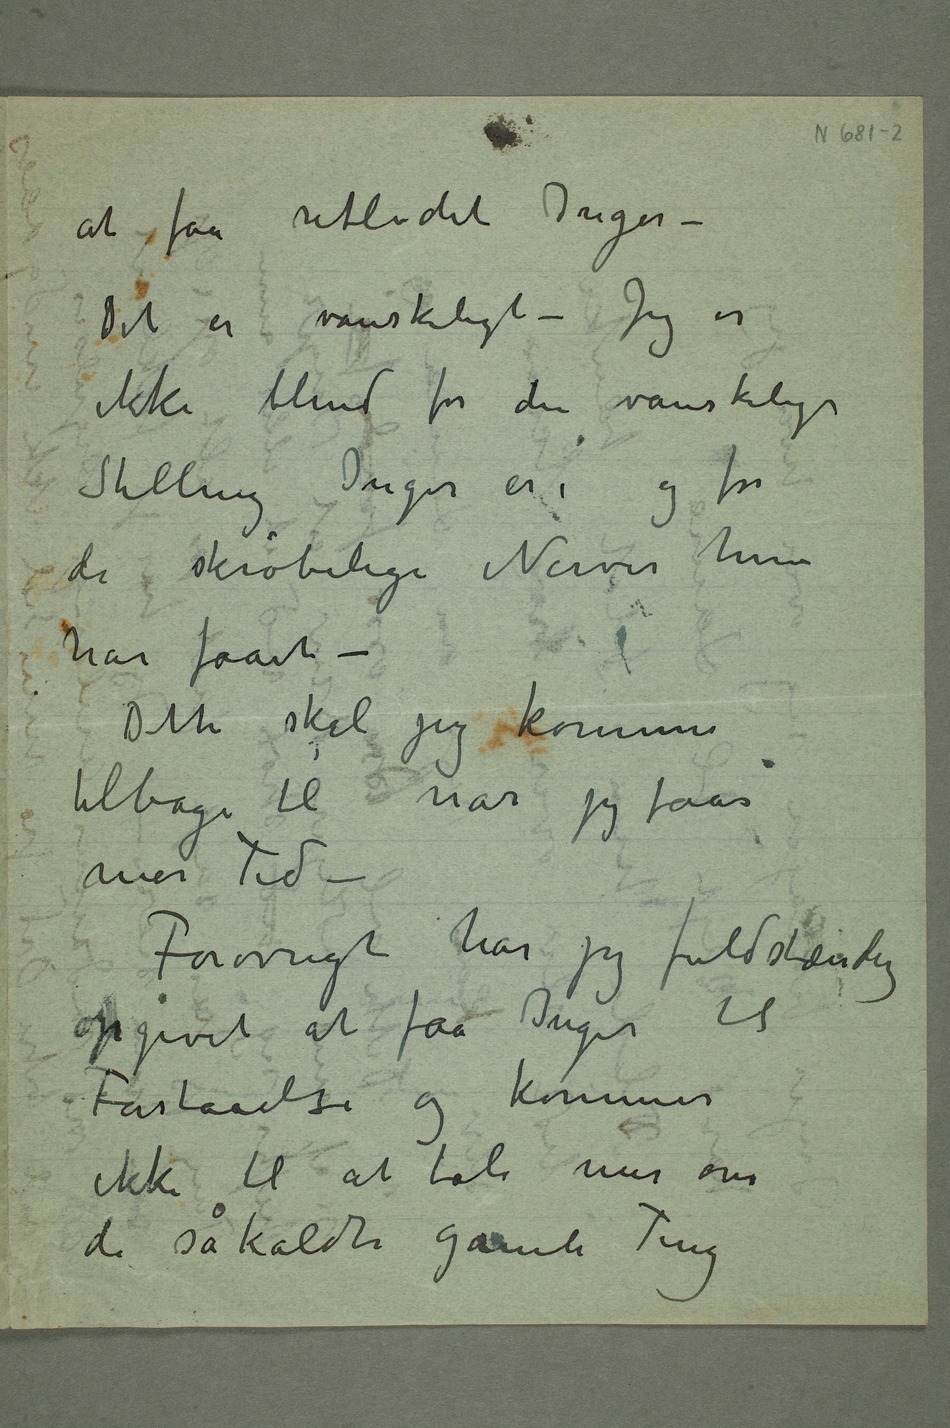 N 681-2
at faa retledet Inger –
Det er vanskeligt – Jeg er
ikke blind for den vanskelige
Stilling Inger er i og for
de skrøbelige Nerver hun
har faaet –
Dette skal jeg komme
tilbage til når jeg faar
mer Tid –
Forøvrigt har jeg fuldstændig
opgivet at faa Inger til
Forstaaelse og kommer
ikke til at tale mer om
de såkaldte gamle Ting